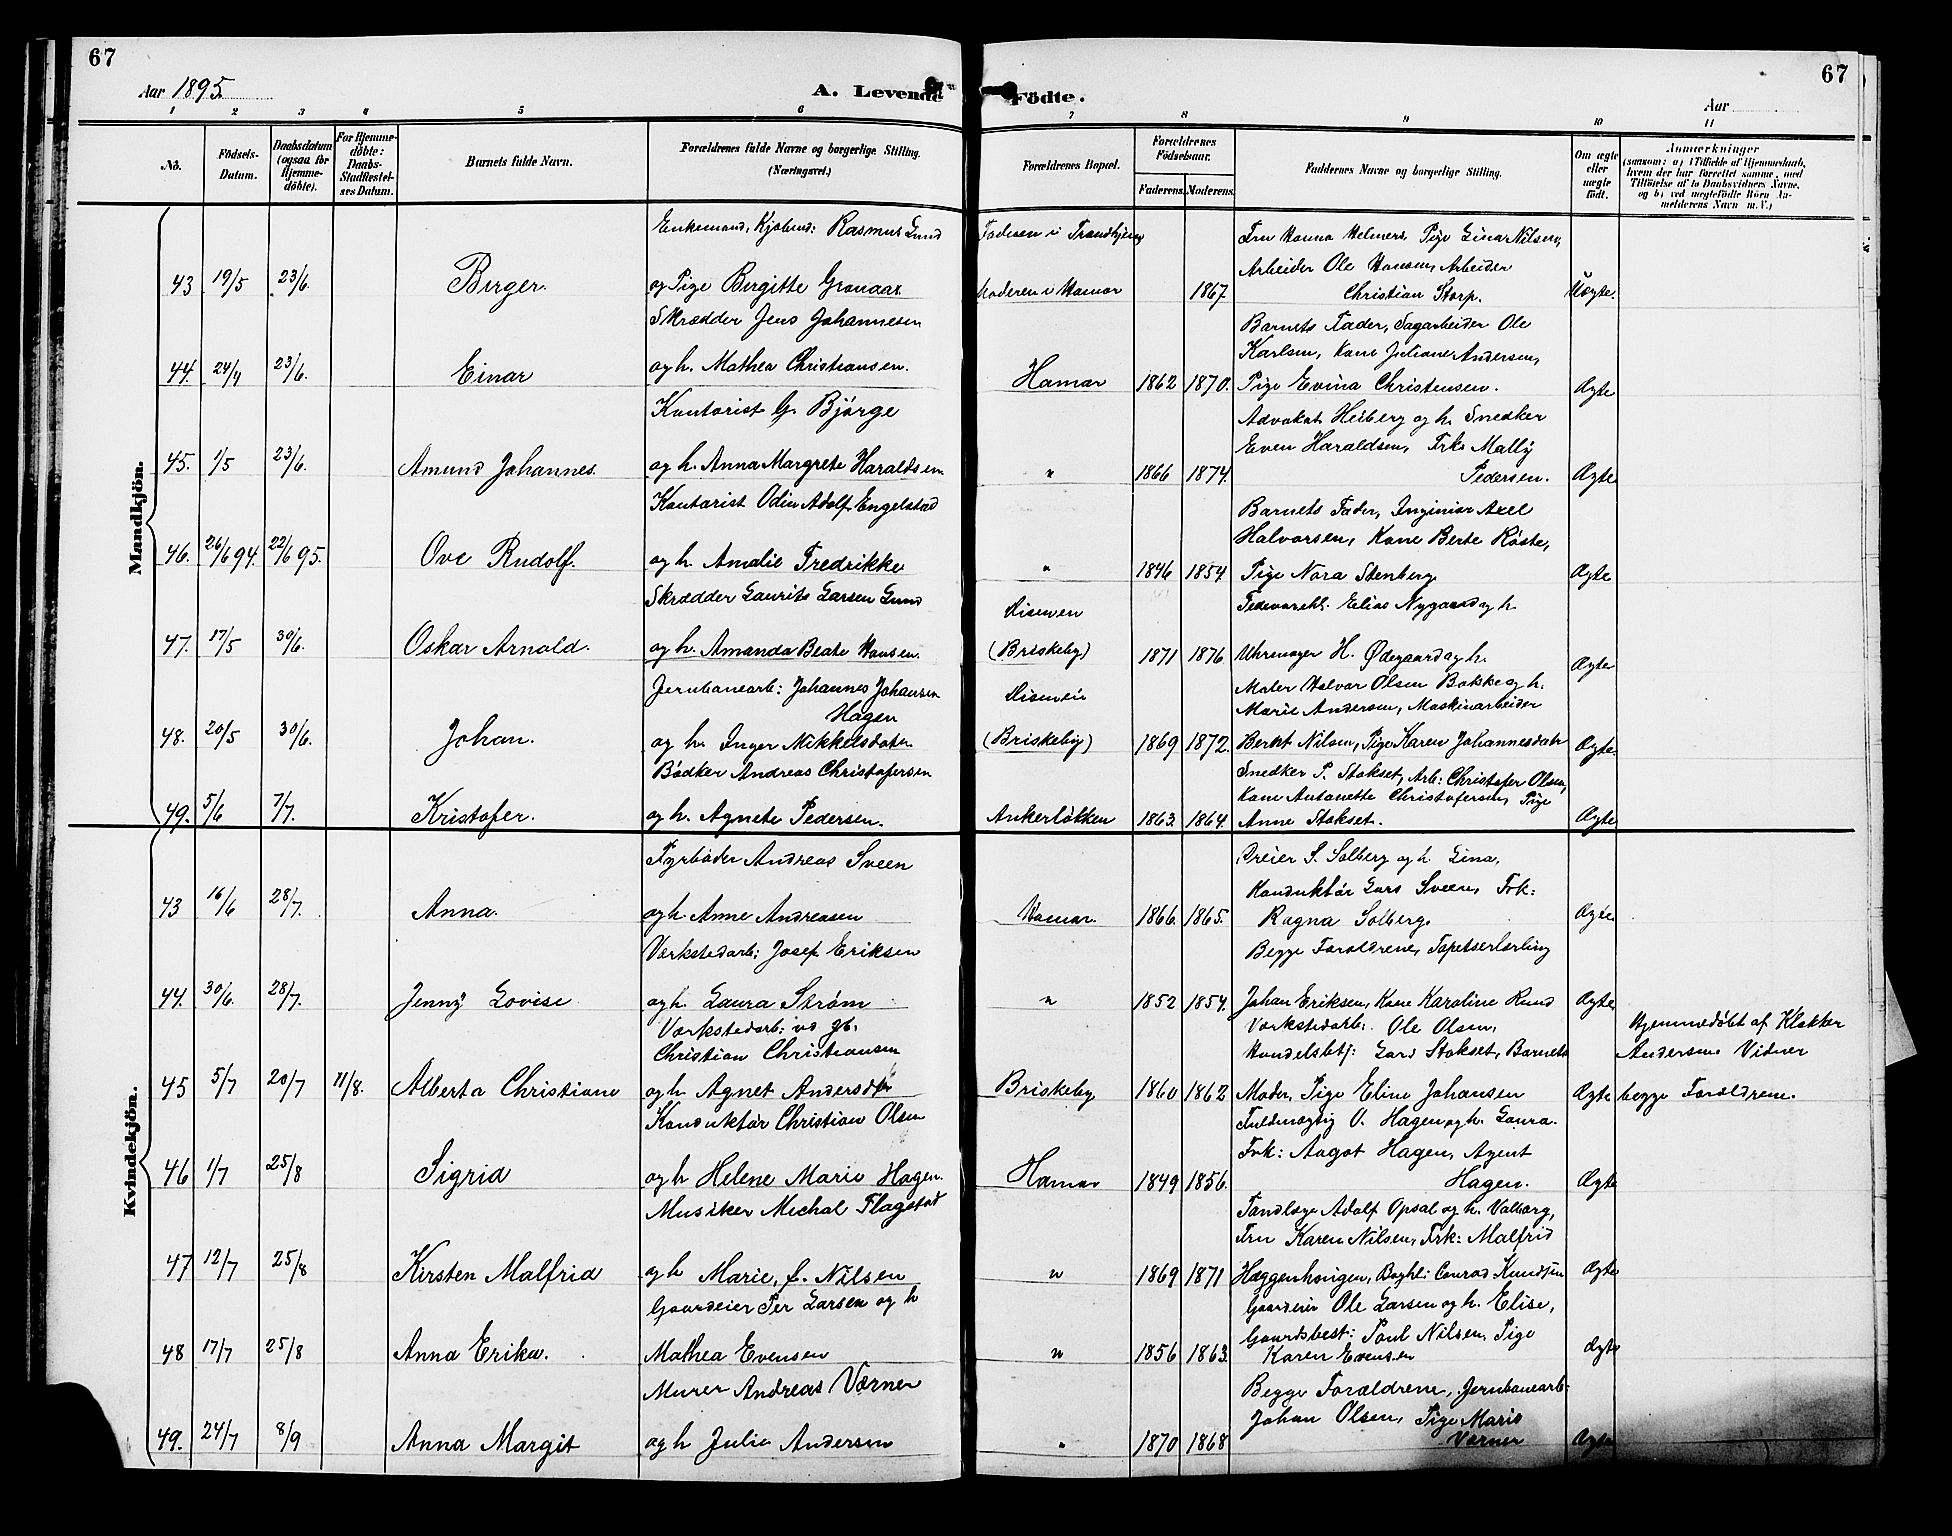 67
67
Aar 1895.
A. Levende Födte.
Aar
1 2 3 4 5 6 7 8 9 10 11
No.
Födsels-Datum.
Daabsdatum (ogsaa for Hjemme-döbte).
For Hjemme-döbte: Daabs-Stadfæstel-ses Datum.
Barnets fulde Navn.
Forældrenes fulde Navne og borgerlige Stilling. (Næringsvei.)
Forældrenes Bopæl.
Forældrenes Födselsaar.
Faderens. Moderens.
Faddernes Navne og borgerlige Stilling.
Om ægte eller uægte födt.
Anmærkninger (saasom: a) i Tilfælde af Hjemmedaab, hvem der har forrettet samme, med Tilföielse af to Daabsvidners Navne, og b) ved uægtefödte Börn An-melderens Navn m. V.)
Mandkjön.
Enkemand, Kjøbmd: Rasmus Lund Faderen i Trondhjem Fru Hanna Helmers, Pige Lina Nilsen,
Arbeider Ole Hansen, Arbeider
43 19/5 23/6. Birger. og Pige Birgitte Granaas Moderen i Hamar 1867 Christian Storp. Uægte.
Skrædder Jens Johannesen Barnets Fader, Sagarbeider Ole
Karlsen, Kone Juliane Andersen,
44. 24/4 23/6. Einar og h. Mathea Christiansen. Hamar 1862 1870. Pige Evina Christensen. Ægte
Kontorist G. Bjørge Advokat Heiberg og h. Snedker
Even Haraldsen, Frk. Mally
45. 1/5 23/6. Amund Johannes. og h. Anna Margrete Haraldsen " 1866 1874. Pedersen. Ægte
Kontorist Odin Adolf Engelstad Barnets Fader, Inginiør Axel
Halvorsen, Kone Berte Røste,
46. 26/6 94. 22/6 95. Ove Rudolf. og h. Amalie Fredrikke " 1846 1854 Pige Nora Stenberg Ægte
Skrædder Laurits Larsen Lund Disenen Fedevarehl. Elias Nygaard og h.
47. 17/5 30/6. Oskar Arnold. og h. Amanda Beate Hansen. (Briskeby) 1871 1876 Uhrmager H. Ødegaard og h. Ægte
Jernbanearb: Johannes Johansen Disenen Maler Halvor Olsen Bakke og h.
Hagen Marie Andersen, Maskinarbeider
48. 20/5 30/6. Johan. og h. Inger Mikkelsdater (Briskeby) 1869 1872. Bernt Nilsen, Pige Karen Johannesdatr Ægte
Bødker Andreas Christofersen Snedker P. Stokset, Arb: Christofer Olsen,
Kone Antonette Christofersen, Pige
49. 5/6 7/7. Kristofer. og h. Agnete Pedersen. Ankerløkken 1863. 1864. Anne Stokset. Ægte
Kvindekjön.
Fyrbøder Andreas Sveen Dreier S. Solberg og h. Lina,
Konduktør Lars Sveen, Frk:
43 16/6 28/7. Anna. og h. Anne Andreasen Hamar. 1866. 1865. Ragna Solberg. Ægte
Værkstedarb: Josef Eriksen Begge Forældrene, Tapetserlærling
44. 30/6. 28/7. Jenny Lovise og h. Laura Strøm " 1852 1854. Johan Eriksen, Kone Karoline Rund Ægte
Værkstedarb: Værkstedarb: Ole Olsen, Hjemmedøbt af Klokker
Christian Christiansen Handelsbetj: Lars Stokset, Barnets Andersen. Vidner
45 5/7 20/7 11/8. Alberta Christiane og h Agnet Andersdtr Briskeby 1860 1862 Moder, Pige Eline Johansen Ægte begge Forældrene.
Konduktør Christian Olsen Fuldmægtig O. Hagen og h. Laura.
Frk: Aagot Hagen, Agent
46 1/7 25/8 Sigrid og h Helene Marie Hagen. Hamar 1849 1856. Hagen. Ægte
Musiker Michal Flagstad Tandlæge Adolf Opsal og h. Valborg,
Fru Karen Nilsen, Frk: Malfrid
47 12/7 25/8 Kirsten Malfrid og h Marie, f. Nilsen " 1869 1871 Hæggenhougen, Boghl: Conrad Knudsen Ægte
Gaardeier Per Larsen og h Gaardeier Ole Larsen og h. Elise,
Gaardsbest: Poul Nilsen, Pige
48 17/7 25/8 Anna Erika. Mathea Evensen " 1856 1863. Karen Evensen Ægte
Murer Andreas Værner Begge Forældrene, Jernbanearb:
Johan Olsen, Pige Marie
49. 24/7 8/9 Anna Margit og h Julie Andersen " 1870 1868 Værner Ægte